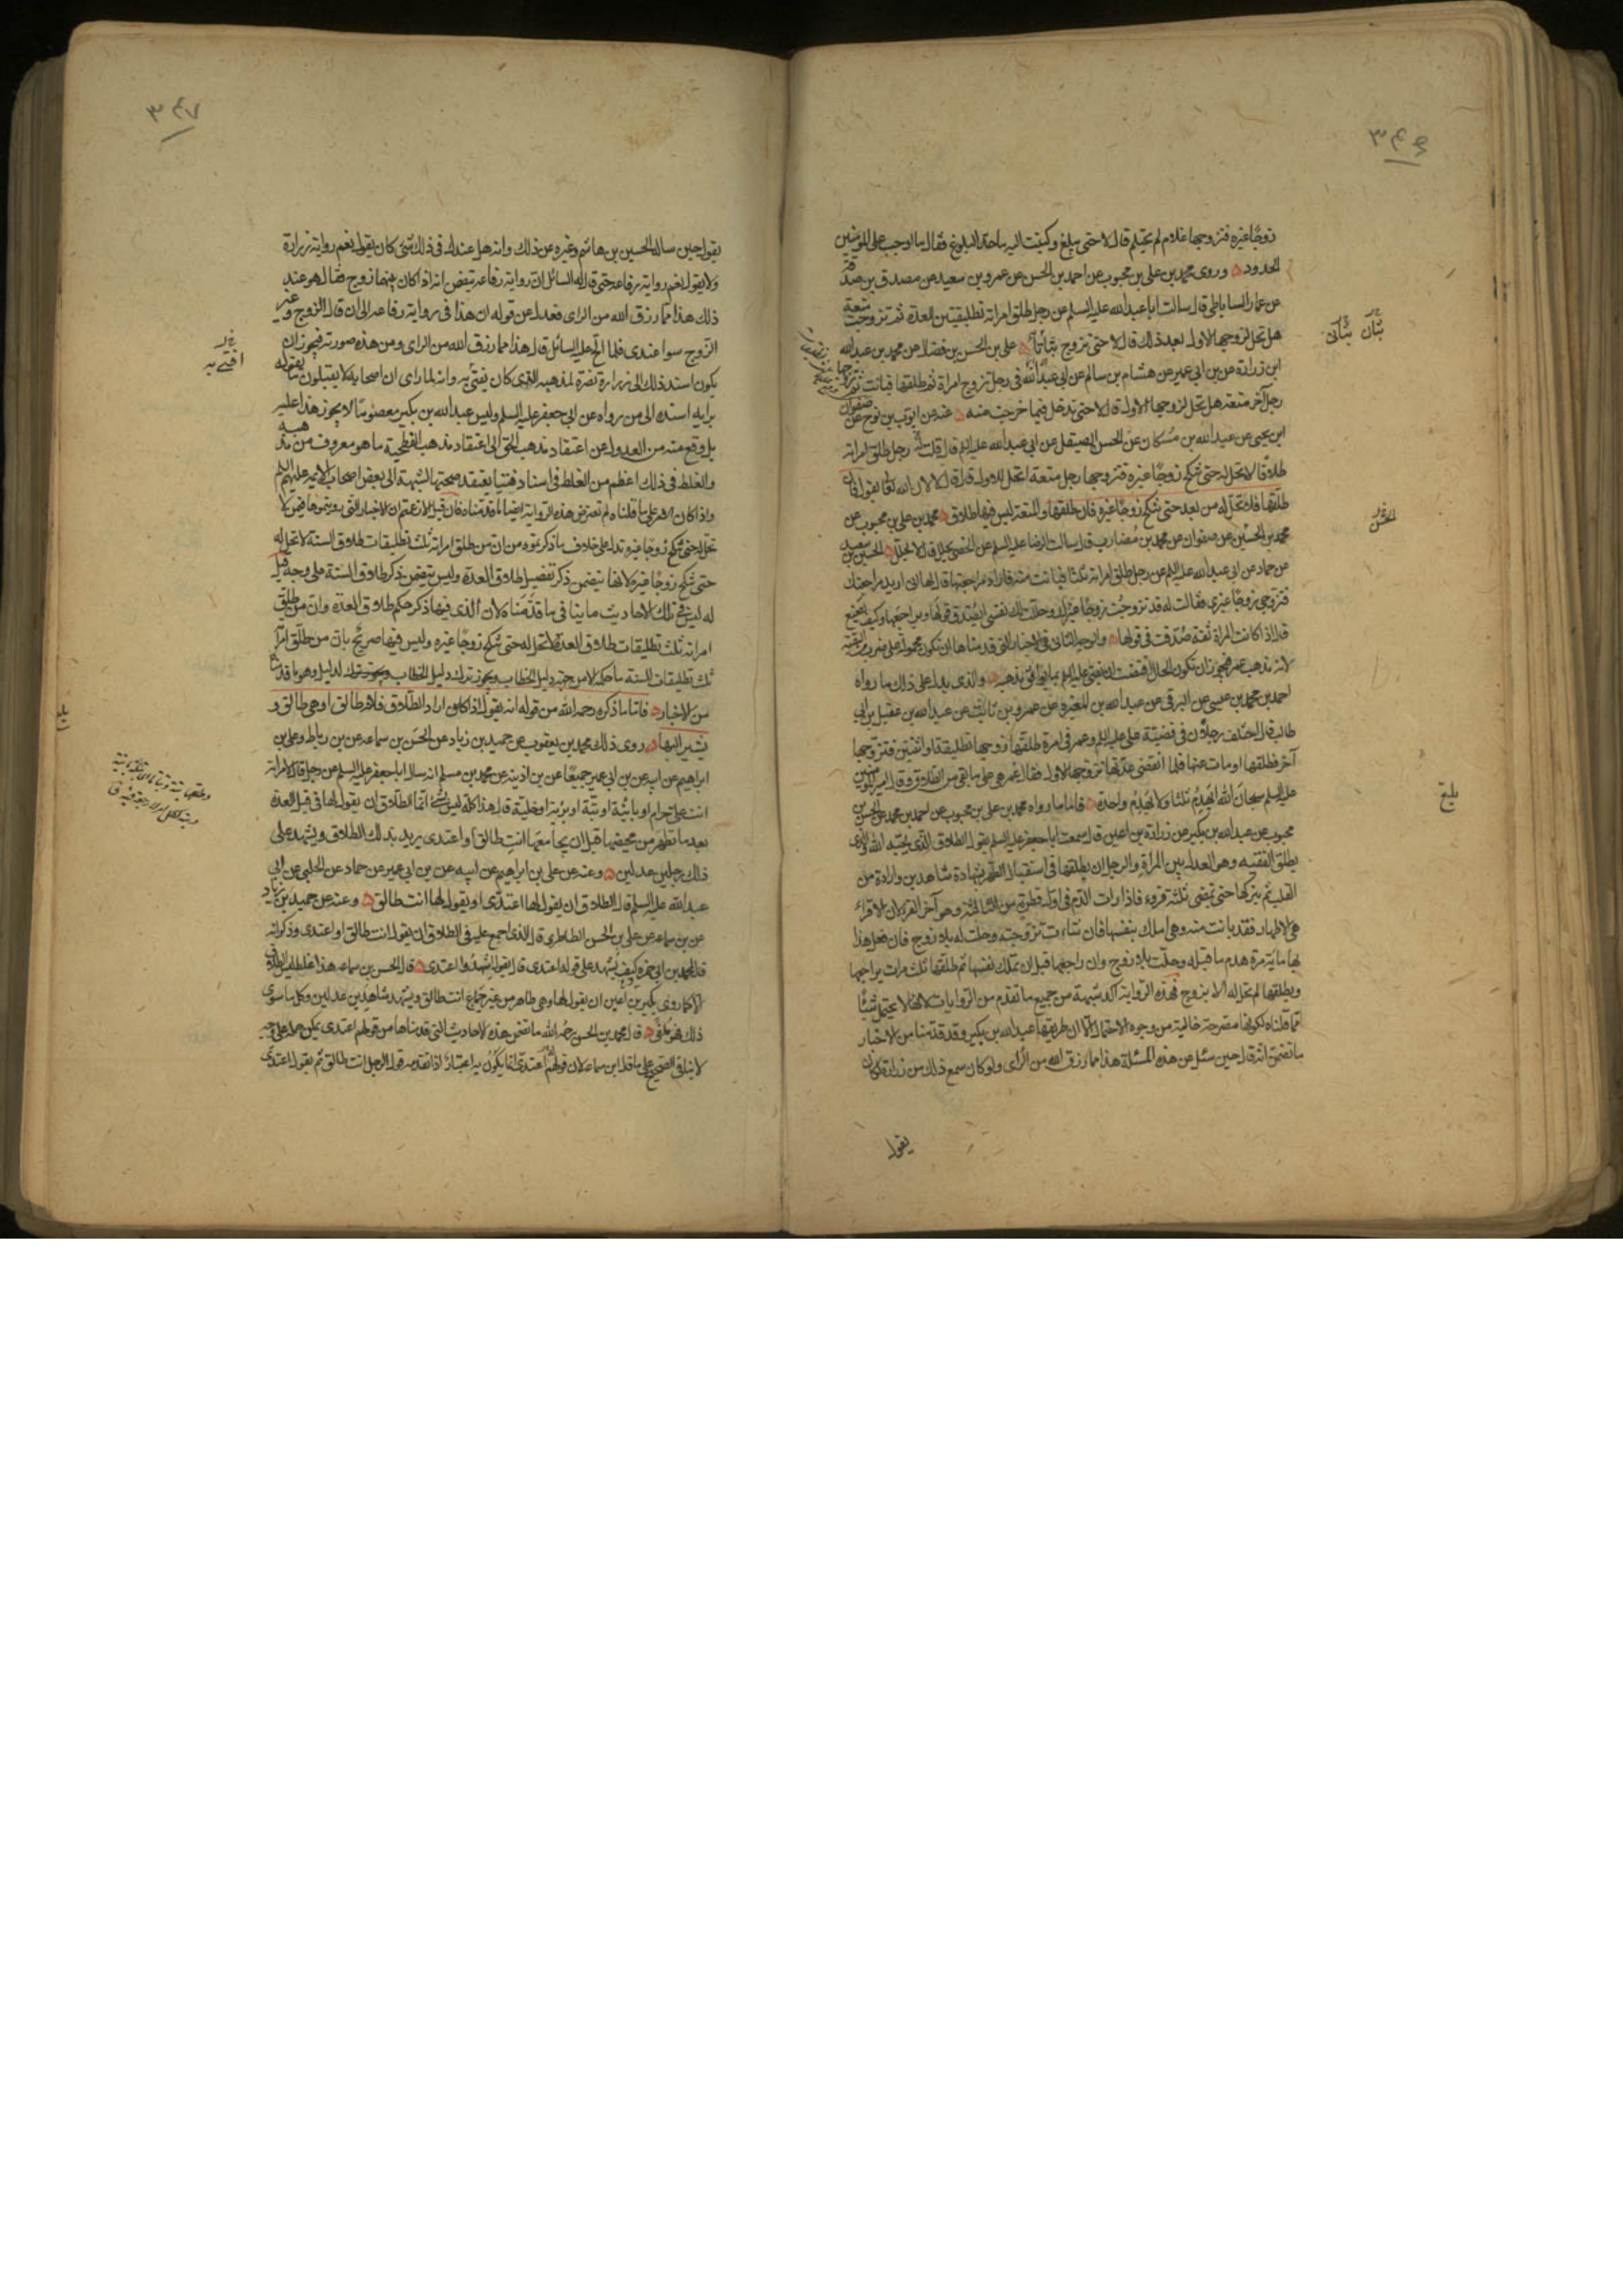 ٣٤٦
زوجًا غيره فتزوجها غلام لم يحتلم قال لا حتى يبلغ وكتبت اليه ما حد البلوغ فقال ما اوجب على المؤمنين
الحدود وروى محمد بن علي بن محبوب عن احمد بن الحسن عن عمرو بن سعيد عن مصدق بن صدقة
عن عمار الساباطي قال سالت ابا عبد الله عليه السلم عن رجل طلق امراته تطليقتين للعدة ثم تزوجت متعة
هل تحل لزوجها الاول بعد ذلك قال لا حتى تزوج بتاتًا علي بن الحسن بن فضال عن محمد بن عبد الله
ابن زرارة عن بن ابي عمير عن هشام بن سالم عن ابي عبد الله في رجل تزوج امراة ثم طلقها فبانت ثم تزوجها
رجل آخر متعة هل تحل لزوجها الاول قال لا حتى تدخل فيما خرجت منه عنه عن ايوب بن نوح عن صفوان
ابن يحيى عن عبد الله بن مسكان عن الحسن الصيقل عن ابي عبد الله عليه السلم قال قلت رجل طلق امراته
طلاقًا لا تحل له حتى تنكح زوجًا غيره فتزوجها رجل متعة اتحل للاول قال لا لان الله تعالى يقول فان
طلقها فلا تحل له من بعد حتى تنكح زوجًا غيره فان طلقها والمتعة ليس فيها طلاق محمد بن علي بن محبوب عن
محمد بن الحسين عن صفوان عن محمد بن مضارب قال سالت الرضا عليه السلم عن الخصي يحلل قال لا يحلل الحسين بن سعيد
عن حماد عن ابي عبد الله عليه السلم عن رجل طلق امراته ثلثًا فبانت منه فاراد مراجعتها قال لها اني اريد مراجعتك
فتزوجي زوجًا غيري فقالت له قد تزوجت زوجًا غيرك وحللت لك نفسي ايصدق قولها ويراجعها وكيف يصنع
قال اذا كانت المراة ثقة صدقت في قولها والوجه الثاني في الاخبار التي قدمناها ان تكون محمولة على ضرب من التقية
لانه مذهب عمر فيجوز ان تكون الحال اقتضت ان يفتي عليه السلم بما يوافق مذهبه والذي يدل على ذلك ما رواه
احمد بن محمد بن عيسى عن البرقي عن عبد الله بن المغيرة عن عمرو بن ثابت عن عبد الله بن عقيل بن ابي
طالب قال اختلف رجلان في قضية علي عليه السلم وعمر في امرة طلقها زوجها تطليقة او اثنتين فتزوجها
آخر فطلقها او مات عنها فلما انقضت عدتها تزوجها الاول فقال عمر هي على ما بقي من الطلاق وقال امير المؤمنين
عليه السلم سبحان الله ايهدم ثلثا ولا يهدم واحدة فاما ما رواه محمد بن علي بن محبوب عن احمد بن محمد عن الحسن بن
محبوب عن عبد الله بن بكير عن زرارة بن اعين قال سمعت ابا جعفر عليه السلم يقول الطلاق الذي يحبه الله والذي
يطلق الفقيه وهو العدل بين المراة والرجل ان يطلقها في استقبال الطهر بشهادة شاهدين وارادة من
القلب ثم يتركها حتى تمضي ثلثة قروء فاذا رات الدم في اول قطرة من الثالثة وهو آخر القرء لان الاقراء
هي الاطهار فقد بانت منه وهي املك بنفسها فان شاءت تزوجته وحلت له بلا زوج فان فعل هذا
بها ماية مرة هدم ما قبله وحلت بلا زوج وان راجعها قبل ان تملك نفسها ثم طلقها ثلث مرات يراجعها
ويطلقها لم تحل له الا بزوج فهذه الرواية آكد شبهة من جميع ما تقدم من الروايات لانها لا يحتمل شيئًا
مما قلناه لكونها مصرحة خالية من وجوه الاحتمال الا ان طريقها عبد الله بن بكير وقد قدمنا من الاخبار
ما تضمن انه قال حين سئل عن هذه المسئلة هذا مما رزق الله من الراى ولو كان سمع ذلك من زرارة لكان
يقول
بتان بتاتي
الحسن
بلغ
٣٤٧
يقول حين ساله الحسين بن هاشم وغيره عن ذلك وانه هل عندك في ذلك شئ كان يقول نعم رواية زرارة
ولا يقول نعم رواية رفاعة حتى قال له السائل ان رواية رفاعة تتضمن انه اذا كان بينهما زوج فقال هو عند
ذلك هذا مما رزق الله من الراى فعدل عن قوله ان هذا في رواية رفاعة الى ان قال الزوج وغير
الزوج سوا عندي فلما الح عليه السائل قال هذا مما رزق الله من الراى ومن هذه صورته فيجوز ان
يكون اسند ذلك الى زرارة نصرة لمذهبه الذي كان يفتي به وانه لما راى ان اصحابه لا يقبلون ما يقوله
برايه اسنده الى من رواه عن ابي جعفر عليه السلم وليس عبد الله بن بكير معصومًا لا يجوز هذا عليه
بل وقع منه من العدول عن اعتقاد مذهب الحق الى اعتقاد مذهب الفطحية ما هو معروف من مذهبه
والغلط في ذلك اعظم من الغلط في اسناد فتيا يعتقد صحتها لشبهة الى بعض اصحاب الائمة عليهم السلم
واذا كان الامر على ما قلناه لم تعترض هذه الرواية ايضا لما قدمناه فان قيل الا زعمتم ان الاخبار التي رويتموها فيمن لا
تحل حتى تنكح زوجا غيره تدل على خلاف ما ذكرتموه من ان من طلق امراته ثلث تطليقات طلاق السنة لا تحل له
حتى تنكح زوجًا غيره لانها تتضمن ذكر تفصيل طلاق العدة وليس تتضمن ذكر طلاق السنة على وجه قيل
له ليس في تلك الاحاديث ما ينافي ما قدمناه لان الذي فيها ذكر حكم طلاق العدة وان من طلق
امراته ثلث تطليقات طلاق العدة لا تحل له حتى تنكح زوجًا غيره وليس فيها صريح بان من طلق امراته
ثلث تطليقات للسنة ما حكمه الا من جهة دليل الخطاب ويجوز ترك دليل الخطاب لدليل وهو ما قدمناه
من الاخبار فاما ما ذكره رحمه الله من قوله انه يقول اذا كان اراد الطلاق فلانة طالق او هي طالق و
يشير اليها روى ذلك محمد بن يعقوب عن حميد بن زياد عن الحسن بن سماعة عن بن رباط وعلي بن
ابراهيم عن ابيه عن بن ابي عمير جميعًا عن بن اذينة عن محمد بن مسلم انه سال ابا جعفر عليه السلم عن رجل قال لامراته
انت علي حرام او باينة او بتة او برية او خلية قال هذا كله ليس بشئ انما الطلاق ان يقول لها في قبل العدة
بعد ما تطهر من محيضها قبل ان يجامعها انت طالق او اعتدي يريد بذلك الطلاق ويشهد على
ذلك رجلين عدلين وعنه عن علي بن ابراهيم عن ابيه عن بن ابي عمير عن حماد عن الحلبي عن ابي
عبد الله عليه السلم قال الطلاق ان يقول لها اعتدي او يقول لها انت طالق وعنه عن حميد بن زياد
عن بن سماعة عن علي بن الحسن الطاطري قال الذي اجمع عليه في الطلاق ان يقول انت طالق او اعتدي وذكر انه
قال لمحمد بن ابي حمزة كيف يشهد على قوله اعتدي قال يقول اشهدوا اعتدي قال الحسن بن سماعة هذا غلط ليس الطلاق
الا كما روى بكير بن اعين ان يقول لها وهي طاهر من غير جماع انت طالق ويشهد شاهدين عدلين وكل ما سوى
ذلك فهو ملغى قال محمد بن الحسن رحمه الله ما تضمن هذه الاحاديث التي قدمناها من قولهم اعتدي يمكن حمله على وجه
لا ينافي الصحيح على ما قال ابن سماعة لان قولهم اعتدي انما يكون به اعتبار اذا تقدمه قول الرجل انت طالق ثم يقول اعتدي
افتى به